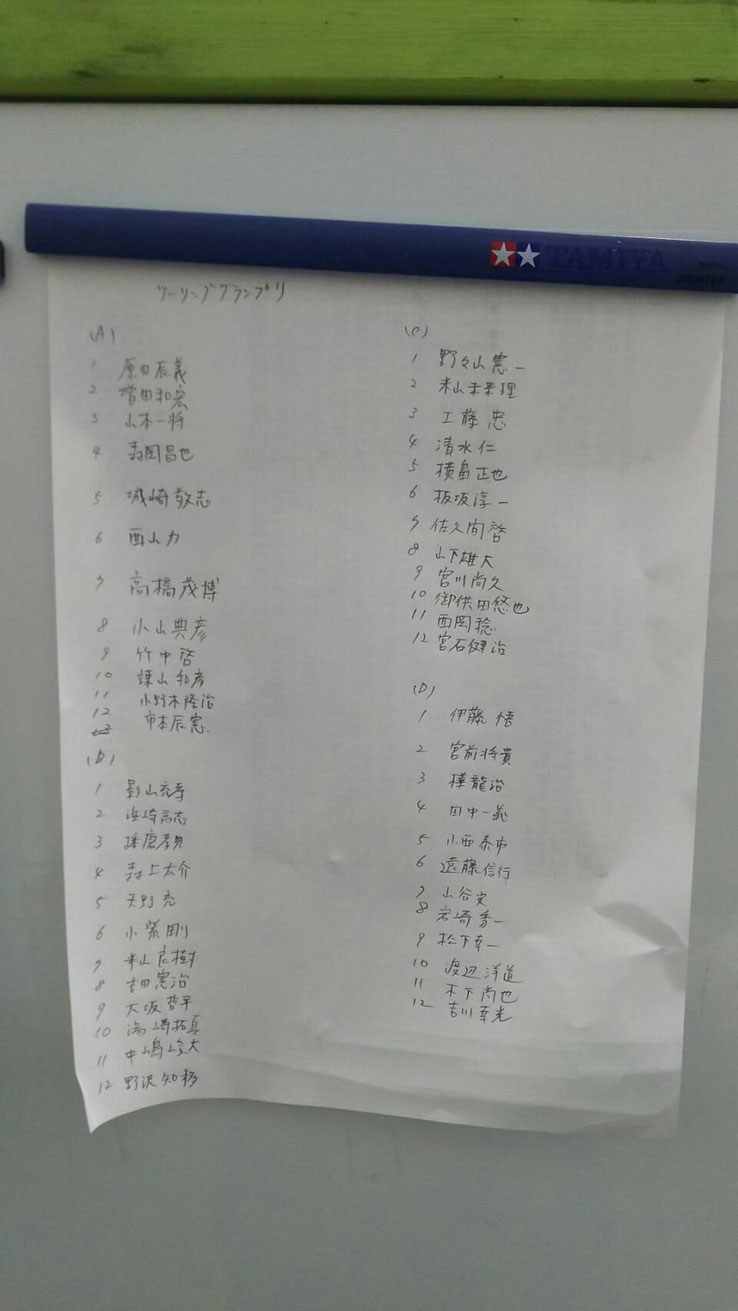 TAMIYA
ツーリンググランプリ
(A)
1 原田辰義
2 増田和宏
3 山本一将
4 寿岡昌也
5 城崎敦志
6 西山力
7 高橋茂博
8 小山典彦
9 竹中啓
10 諌山和彦
11 小野木隆治
12 市本辰憲
(B)
1 影山
2 浜崎高志
3 播磨
4 村上太介
5 天野充
6 小柴剛
7 米山広樹
8 吉田憲治
9 大坂哲平
10
11 中嶋峻大
12 野沢知杨
(C)
1 野々山憲一
2 米山未来理
3 工藤忠
4 清水仁
5 横畠正也
6 板坂淳一
7 佐久間啓
8 山下雄大
9 宮川尚久
10 御供田悠也
11 西岡稔
12 宮石健治
(D)
1 伊藤悟
2 宮前将貴
3 龍治
4 田中一義
5 小西泰市
6 遠藤信行
7 山谷実
8 岩崎秀一
9 松下幸一
10 渡辺洋道
11 木下尚也
12 吉川幸光